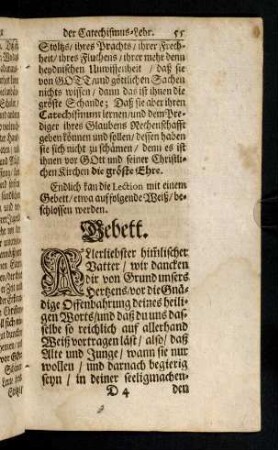 der Catechismus-Lehr. 55
Stoltzs / ihres Prachts / ihrer Frech-
heit / ihres Fluchens / ihrer mehr denn
heydnischen Unwissenheit / daß sie
von GOTT und göttlichen Sachen
nichts wissen / dann das ist ihnen die
gröste Schande; Daß sie aber ihren
Catechismum lernen / und dem Pre-
diger ihres Glaubens Rechenschafft
geben können und sollen / dessen haben
sie sich nicht zu schämen / denn es ist
ihnen vor GOtt und seiner Christli-
chen Kirchen die gröste Ehre.
Endlich kan die Lection mit einem
Gebett / etwa auf folgende Weiß / be-
schlossen werden.
Gebett.
ALlerliebster him̃lischer
Vatter / wir dancken
dir von Grund unsers
Hertzens / vor die Gnä-
dige Offenbahrung deines heili-
gen Worts / und daß du uns das-
selbe so reichlich auf allerhand
Weiß vortragen läst / also / daß
Alte und Junge / wann sie nur
wollen / und darnach begierig
seyn / in deiner seeligmachen-
D 4 den